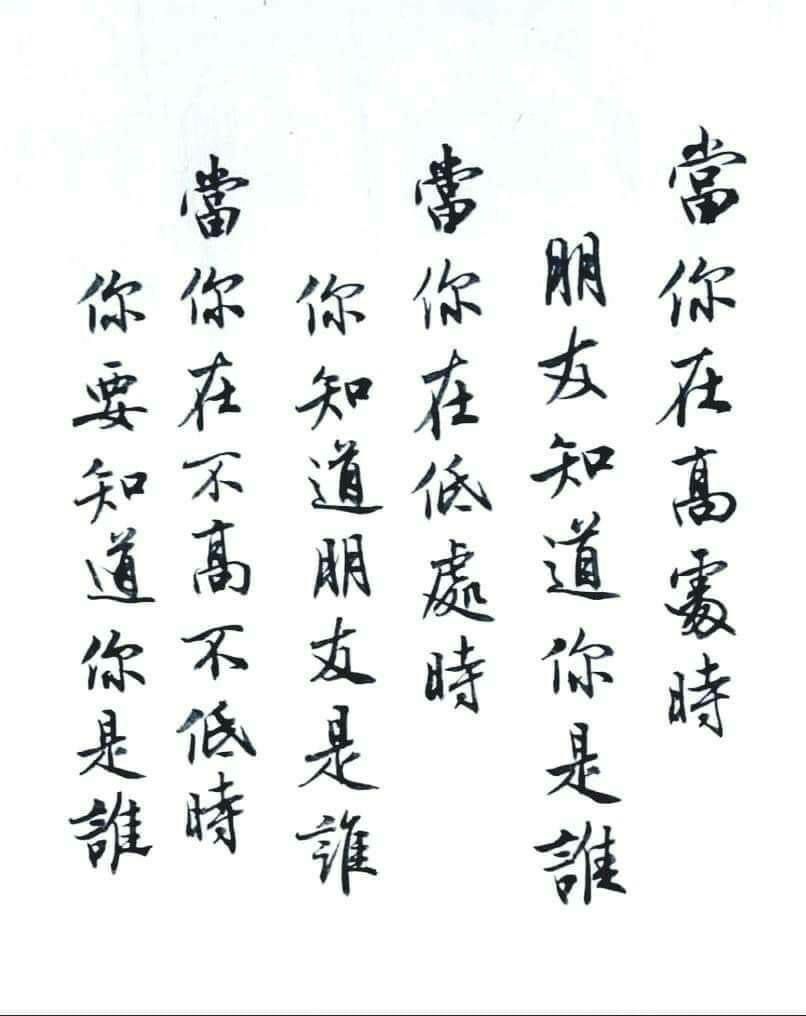 當你在高處時
朋友知道你是誰
當你在低處時
你知道朋友是誰
當你在不高不低時
你要知道你是誰